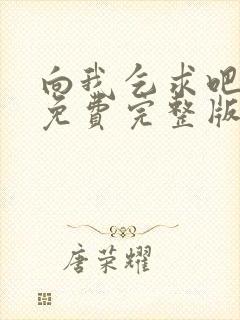 向我乞求吧
免费完整版
唐荣耀